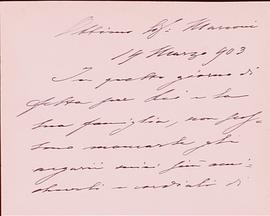 Ottimo Sig: Marconi
19 Marzo 903
In questo giorno di
festa per Lei e la
sua famiglia, non pos
sono mancarle gli
augurii miei più ami
chevoli e cordiali di